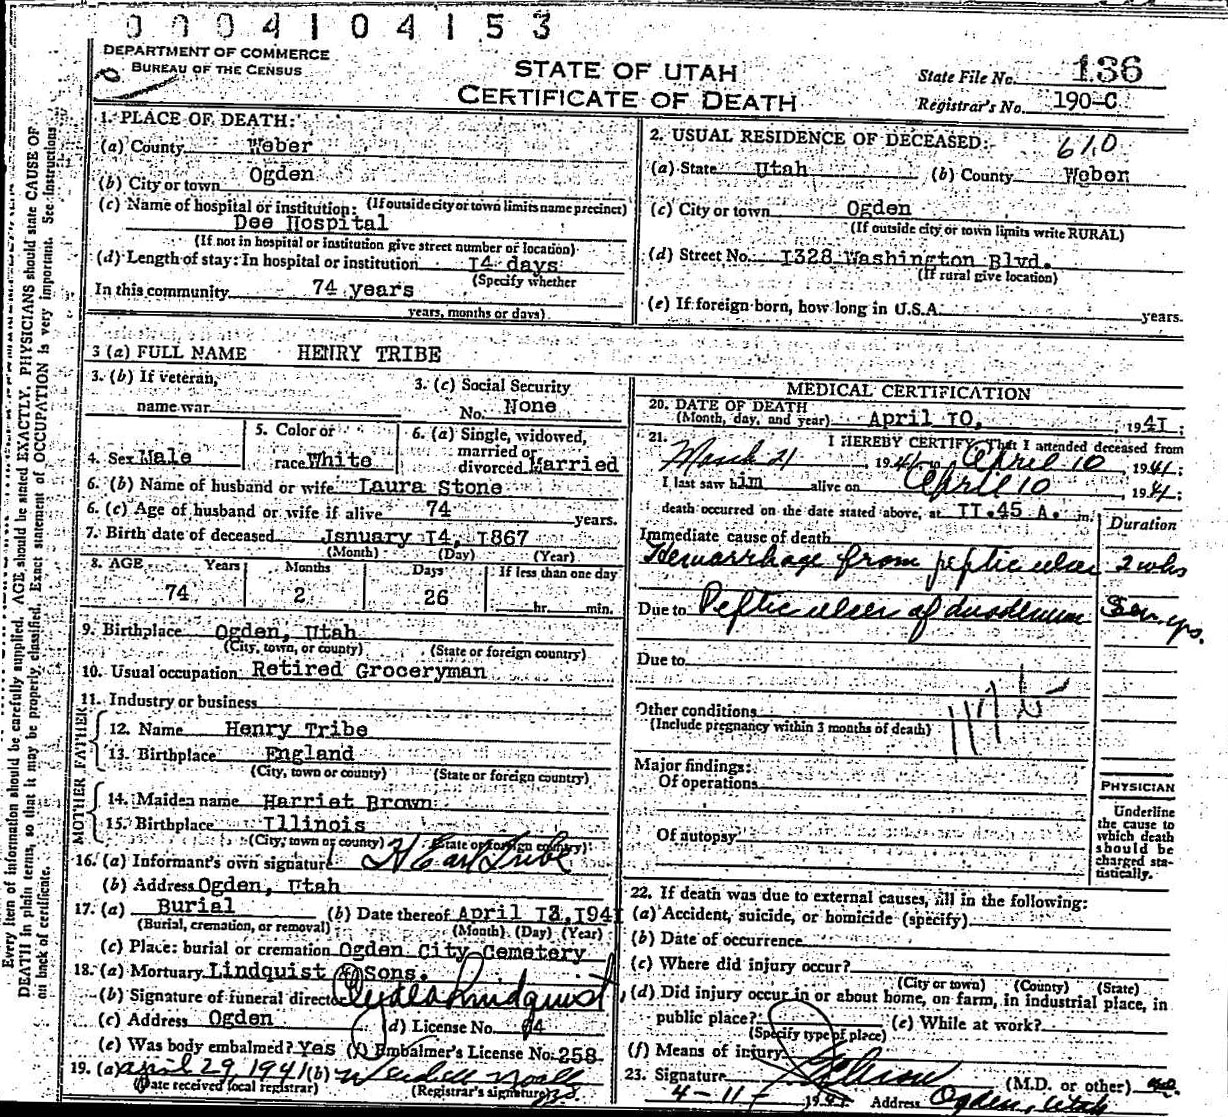 0004104153
DEPARTMENT OF COMMERCE
BUREAU OF THE CENSUS
STATE OF UTAH
CERTIFICATE OF DEATH
State File No. 136
Registrar's No. 190-C
1. PLACE OF DEATH:
(a) County Weber
(b) City or town Ogden
(If outside city or town limits name precinct)
(c) Name of hospital or institution:
Dee Hospital
(If not in hospital or institution give street number or location)
(d) Length of stay: In hospital or institution 14 days
(Specify whether
In this community 74 years
years, months or days)
2. USUAL RESIDENCE OF DECEASED: 610
(a) State Utah (b) County Weber
(c) City or town Ogden
(If outside city or town limits write RURAL)
(d) Street No. 1328 Washington Blvd.
(If rural give location)
(e) If foreign born, how long in U.S.A. years.
3 (a) FULL NAME HENRY TRIBE
3. (b) If veteran,
name war
3. (c) Social Security
No. None
4. Sex Male
5. Color or
race White
6. (a) Single, widowed,
married or
divorced Married
6. (b) Name of husband or wife Laura Stone
6. (c) Age of husband or wife if alive 74 years.
7. Birth date of deceased January 14, 1867
(Month) (Day) (Year)
8. AGE Years Months Days If less than one day
74 2 26 hr. min.
9. Birthplace Ogden, Utah
(City, town, or county) (State or foreign country)
10. Usual occupation Retired Groceryman
11. Industry or business
FATHER
12. Name Henry Tribe
13. Birthplace England
(City, town or county) (State or foreign country)
MOTHER
14. Maiden name Harriet Brown
15. Birthplace Illinois
(City, town or county) (State or foreign country)
16. (a) Informant's own signature H Earl Tribe
(b) Address Ogden, Utah
17. (a) Burial (b) Date thereof April 13, 1941
(Burial, cremation, or removal) (Month) (Day) (Year)
(c) Place: burial or cremation Ogden City Cemetery
18. (a) Mortuary Lindquist & Sons.
(b) Signature of funeral director Clyde Lindquist
(c) Address Ogden (d) License No. 64
(e) Was body embalmed? Yes (f) Embalmer's License No. 258
19. (a) April 29 1941 (b) Wendell Noall
(Date received local registrar) (Registrar's signature)
MEDICAL CERTIFICATION
20. DATE OF DEATH
(Month, day, and year) April 10, 1941
21. I HEREBY CERTIFY, That I attended deceased from
March 21, 1941 to April 10, 1941;
I last saw him alive on April 10, 1941;
death occurred on the date stated above, at 11.45 A. m.
Duration
Immediate cause of death
Hemorrhage from peptic ulcer 2 wks
Due to Peptic ulcer of duodenum Sev yrs.
Due to
Other conditions
(Include pregnancy within 3 months of death)
Major findings:
Of operations
Of autopsy
PHYSICIAN
Underline
the cause to
which death
should be
charged sta-
tistically.
22. If death was due to external causes, fill in the following:
(a) Accident, suicide, or homicide (specify)
(b) Date of occurrence
(c) Where did injury occur?
(City or town) (County) (State)
(d) Did injury occur in or about home, on farm, in industrial place, in
public place? (e) While at work?
(Specify type of place)
(f) Means of injury
23. Signature (M.D. or other)
4-11- 1941 Address Ogden, Utah
Every item of information should be carefully supplied. AGE should be stated EXACTLY. PHYSICIANS should state CAUSE OF
DEATH in plain terms, so that it may be properly classified. Exact statement of OCCUPATION is very important. See instructions
on back of certificate.